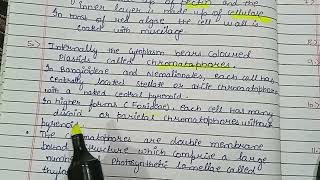 up of pectin and the
inner layer is made up of cellulose
In most of red algae the cell wall is
coated with mucilage
5) Internally the cytoplasm bears coloured
Plastids called chromatophores.
In Bangioideae and Nemalionales, each cell has
centrally located stellate or axile chromatophore
with a naked central pyrenoid.
In higher forms (Florideae), each cell has many
discoid or parietal chromatophores without
pyrenoid.
The chromatophores are double membrane
bound structure which comprise a large
number photosynthetic lamellae called